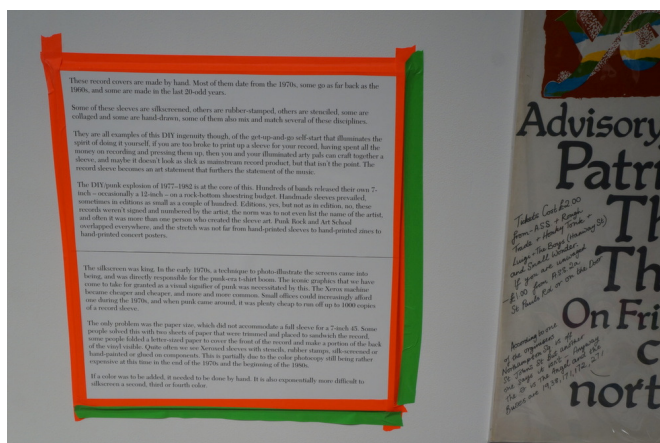 These record covers are made by hand. Most of them date from the 1970s, some go as far back as the
1960s, and some are made in the last 20-odd years.
Some of these sleeves are silkscreened, others are rubber-stamped, others are stenciled, some are
collaged and some are hand-drawn, some of them also mix and match several of these disciplines.
They are all examples of this DIY ingenuity though, of the get-up-and-go self-start that illuminates the
spirit of doing it yourself, if you are too broke to print up a sleeve for your record, having spent all the
money on recording and pressing them up, then you and your illuminated arty pals can craft together a
sleeve, and maybe it doesn't look as slick as mainstream record product, but that isn't the point. The
record sleeve becomes an art statement that furthers the statement of the music.
The DIY/punk explosion of 1977–1982 is at the core of this. Hundreds of bands released their own 7-
inch – occasionally a 12-inch – on a rock-bottom shoestring budget. Handmade sleeves prevailed,
sometimes in editions as small as a couple of hundred. Editions, yes, but not as in edition, so, these
records weren't signed and numbered by the artist, the norm was to not even list the name of the artist,
and often it was more than one person who created the sleeve art. Punk Rock and Art School
overlapped everywhere, and the stretch was not far from hand-printed sleeves to hand-printed zines to
hand-printed concert posters.
The silkscreen was king. In the early 1970s, a technique to photo-illustrate the screens came into
being, and was directly responsible for the punk-era t-shirt boom. The iconic graphics that we have
come to take for granted as a visual signifier of punk was necessitated by this. The Xerox machine
became cheaper and cheaper, and more and more common. Small offices could increasingly afford
one during the 1970s, and when punk came around, it was plenty cheap to run off up to 1000 copies
of a record sleeve.
The only problem was the paper size, which did not accommodate a full sleeve for a 7-inch 45. Some
people solved this with two sheets of paper that were trimmed and placed to sandwich the record,
some people folded a letter-sized paper to cover the front of the record and make a portion of the back
of the vinyl visible. Quite often we see Xeroxed sleeves with stencils, rubber stamps, silk-screened or
hand-painted or glued on components. This is partially due to the color photocopy still being rather
expensive at this time in the end of the 1970s and the beginning of the 1980s.
If a color was to be added, it needed to be done by hand. It is also exponentially more difficult to
silkscreen a second, third or fourth color.
Advisory
Patri
Th
Th
On Fri
c
nort
Tickets Cost £2.00
from ASS + Rough
Trade + Honky Tonk
and Small Wonder
If you are unwaged
£1.00 from ASS 2a
St Pauls Rd or on the Door
According to one
of the organisers
Northampton Sq is off
St Johns St but another